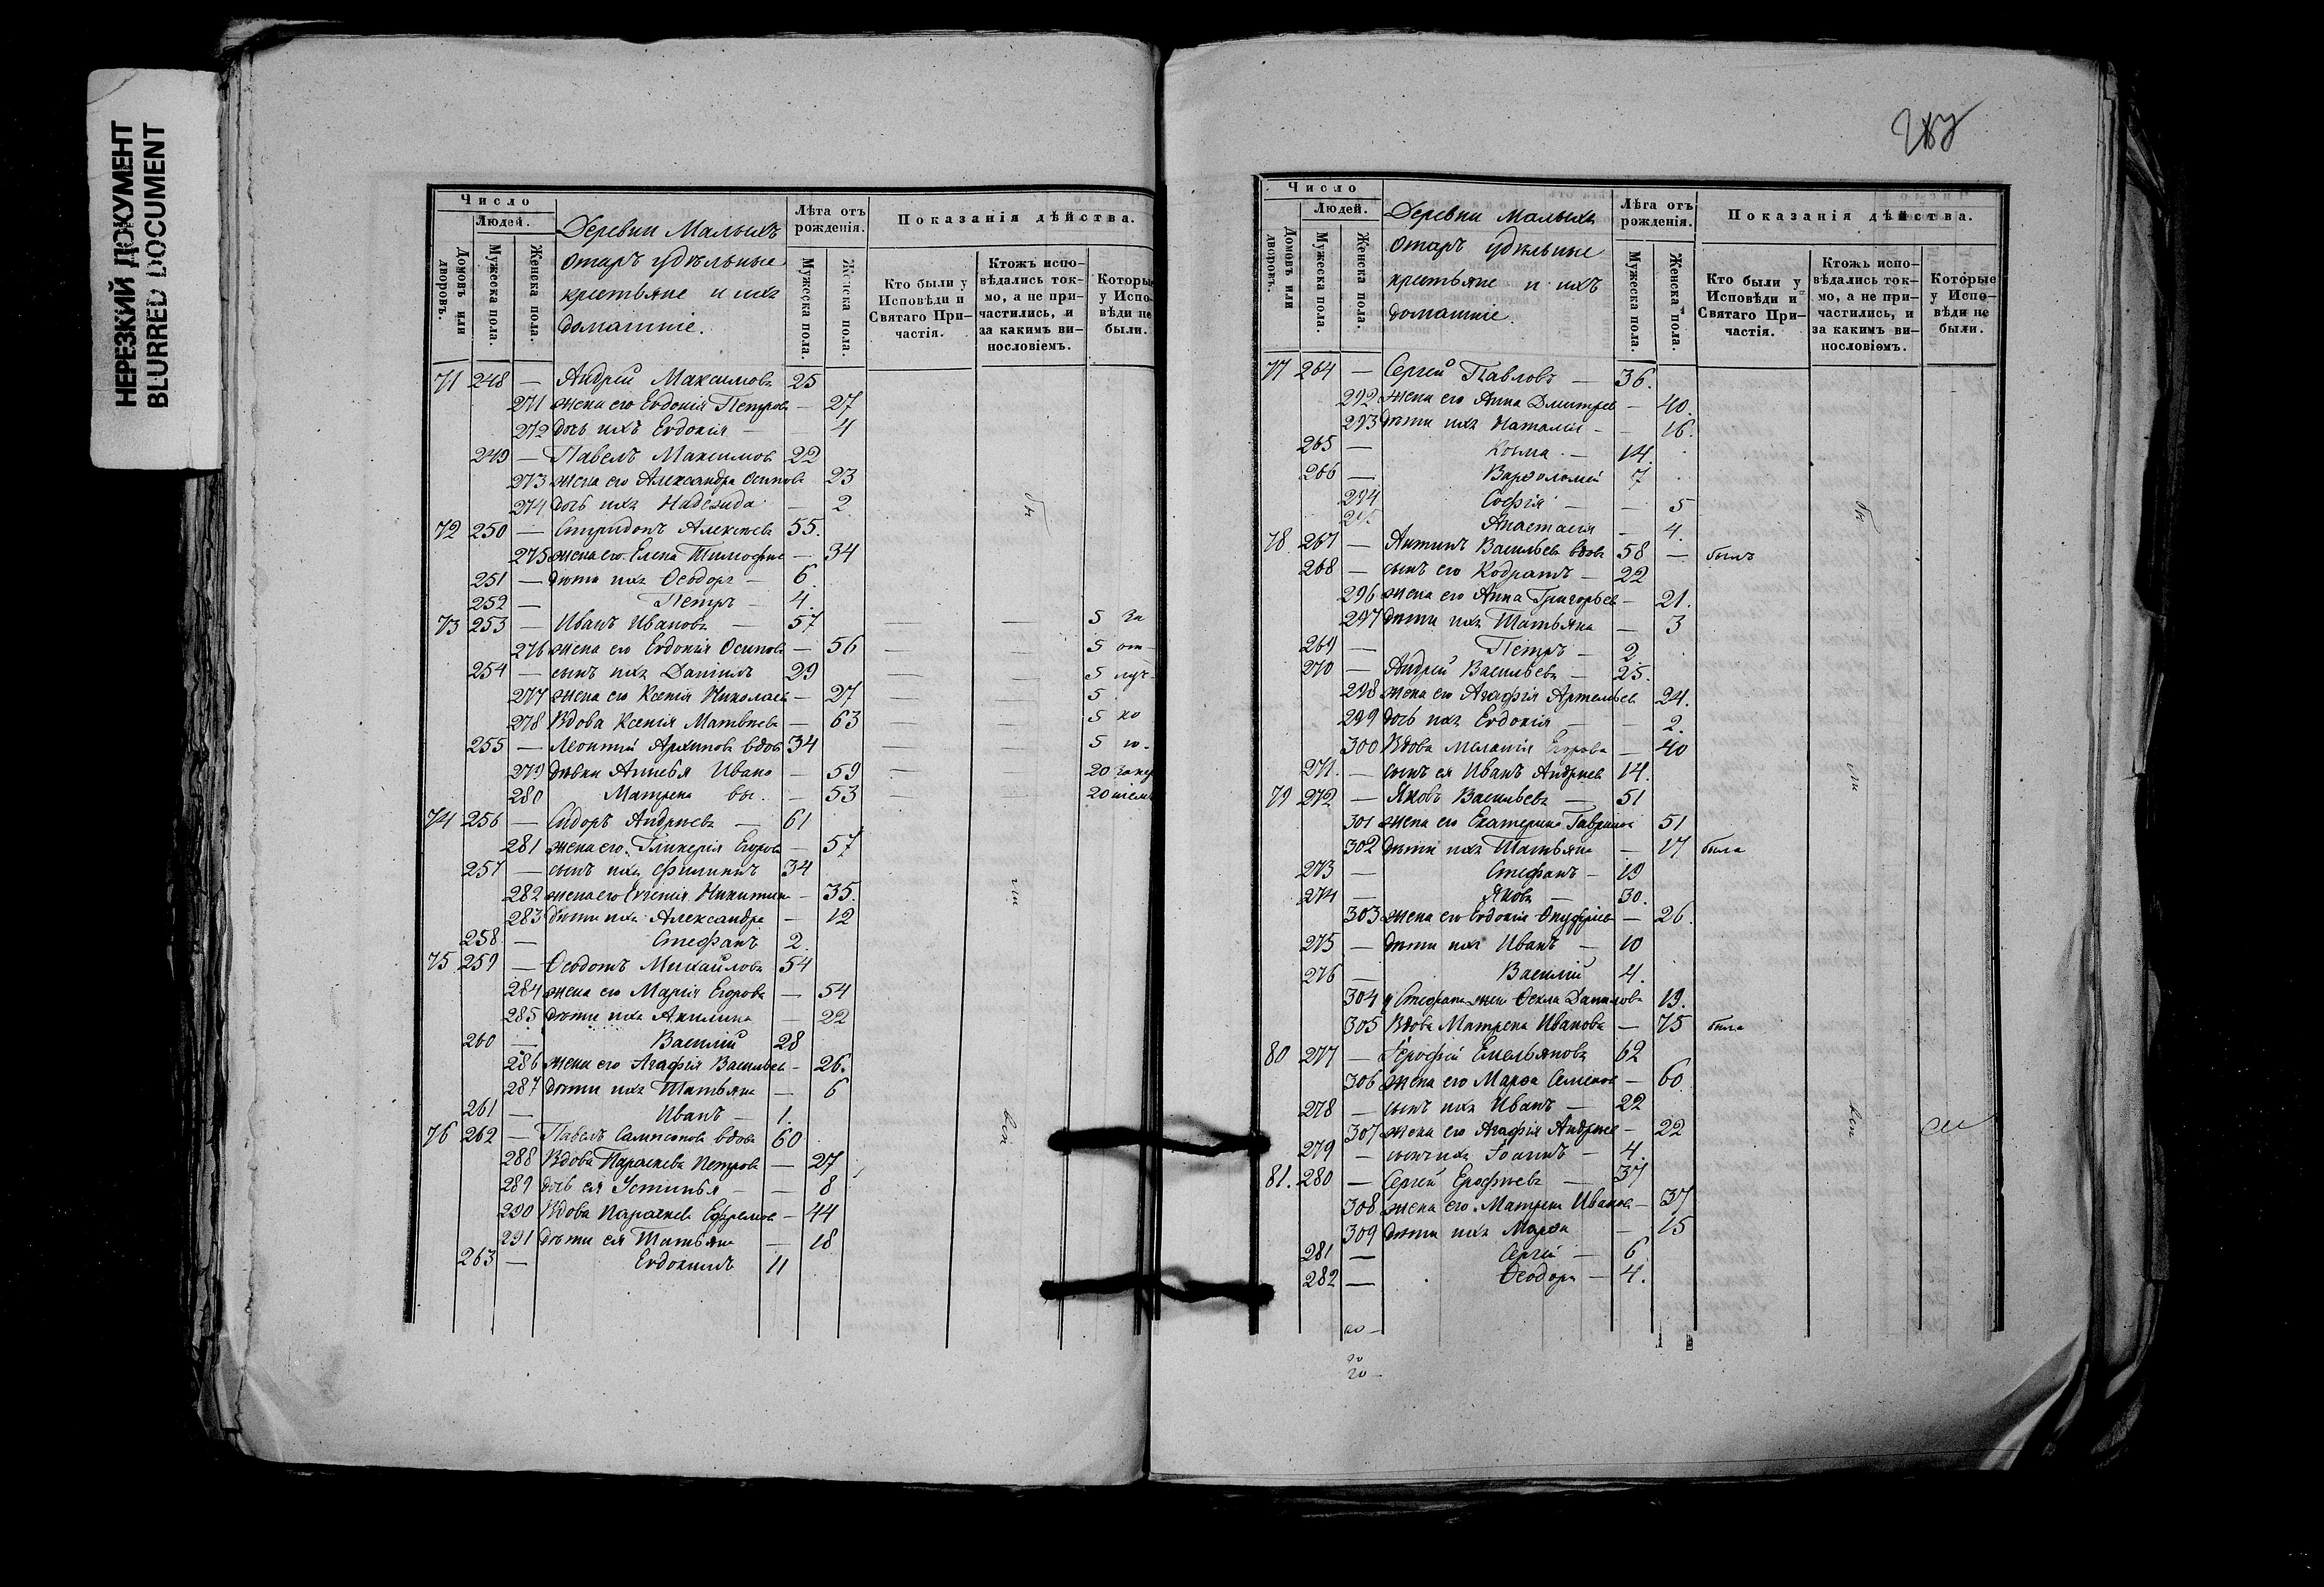 НЕРЕЗКИЙ ДОКУМЕНТ
BLURRED DOCUMENT
Число
Людей.
Домовъ или дворовъ.
Мужеска пола.
Женска пола.
Деревни Малыхъ
отаръ удѣльные
крестьяне и ихъ
домашніе.
Лѣта отъ рожденія.
Мужеска пола.
Женска пола.
Показанія дѣйства.
Кто были у Исповѣди и Святаго При-частія.
Ктожъ испо-вѣдались ток-мо, а не при-частились, и за какимъ ви-нословіемъ.
Которые у Испо-вѣди не были.
71 248 — Андрей Максимовъ 25
271 жена его Евдокія Петрова — 27
272 дочь ихъ Евдокія — 4
249 — Павелъ Максимов 22
273 жена его Александра Осипова 23
274 дочь ихъ Надежда — 2
72 250 — Спиридонъ Алексѣевъ 55.
275 жена его Елена Тимофее — 34
251 — дѣти ихъ Ѳеодоръ — 6
252 — Петръ — 4.
73 253 — Иванъ Ивановъ — 57 — — 5 за
276 жена его Евдокія Осипова — 56 — — 5 от-
254 — сынъ ихъ Даніилъ 29 — — 5 луч-
277 жена его Ксенія Николаев — 27 — — 5
278 Вдова Ксенія Матвѣева — 63 — — 5 ко
255 — Леонтій Архиповъ вдов 34 — — 5 ю.
279 дѣвки Анисья Ивано — 59 — — 20
280 Матрена вы. — 53 — — 20
74 256 — Сидоръ Андреевъ — 61
281 жена его Гликерія Егоров — 57
257 — сынъ ихъ Филиппъ 34
282 жена его Евгенія Никитина — 35.
283 дѣти ихъ Александра — 12
258 — Стефанъ 2.
75 259 — Ѳеодотъ Михайловъ 54
284 жена его Марія Егорова — 54
285 дѣти ихъ Акилина — 22
260 — Василій 28
286 жена его Агафія Васильев — 26.
287 дѣти ихъ Татьяна — 6
261 — Иванъ — 1.
76 262 — Павелъ Сампсоновъ вдовъ 60
288 Вдова Параскева Петрова — 27
289 дочь ея Устинья — — 8
290 Вдова Параскева Ефремов — 44
291 дѣти ея Татьяна — 18
263 — Евдокимъ 11
Число
Людей.
Домовъ или дворовъ.
Мужеска пола.
Женска пола.
Деревни Малыхъ
отаръ удѣльные
крестьяне и ихъ
домашніе.
Лѣта отъ рожденія.
Мужеска пола.
Женска пола.
Показанія дѣйства.
Кто были у Исповѣди и Святаго При-частія.
Ктожъ испо-вѣдались ток-мо, а не при-частились, и за какимъ ви-нословіемъ.
Которые у Испо-вѣди не были.
77 264 — Сергей Павловъ — 36.
292 жена его Анна Дмитрев — 40.
293 дѣти ихъ Наталія — 16.
265 — Козма — 14.
266 — Варѳоломей 7
294 Софія — — 5
295 Анастасія — 4.
78 267 — Антипъ Васильевъ вдовъ 58 — былъ
268 — сынъ его Кодратъ — 22
296 жена его Анна Григорьев — 21.
297 дѣти ихъ Татьяна — 3
269 — Петръ — 2
270 — Андрей Васильевъ — 25.
298 жена его Агафія Артемьев 24.
299 дочь ихъ Евдокія — — 2.
300 Вдова Меланія Егорова — 40
271. — сынъ ея Иванъ Андреев 14.
79 272 — Яковъ Васильевъ — 51
301 жена его Екатерина Гаврилова 51
302 дѣти ихъ Татьяна — 17 была
273 — Стефанъ — 19
274 — Яковъ — 30.
303 жена его Евдокія Онуфріев — 26.
275 — дѣти ихъ Иванъ — 10
276 — Василій 4.
304 у Стефана жена Ѳекла Данилова 19.
305 Вдова Матрена Иванова — 75 была
80 277 — Ерофій Емельяновъ 62
306 жена его Марѳа Семенов — 60
278 — сынъ ихъ Иванъ — 22
307 жена его Агафія Андреев — 22
279 — сынъ ихъ Іоаннъ — 4.
81. 280 — Сергей Ерофѣевъ — 37
308 жена его Матрена Иванов — 37
309 дѣти ихъ Марѳа — 15
281 — Сергій — 6
282 — Ѳеодоръ — 4.